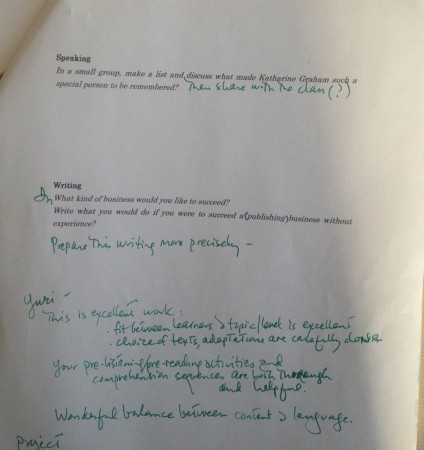 Speaking
In a small group, make a list and discuss what made Katharine Graham such a
special person to be remembered? Then share with the class (?)
Writing
In What kind of business would you like to succeed?
Write what you would do if you were to succeed a (publishing) business without
experience?
Prepare this writing more precisely -
Yuri -
This is excellent work:
· fit between learners & topic/level is excellent
· choice of texts, adaptations are carefully chosen
Your pre-listening/pre-reading activities and
comprehension sequences are both thorough
and helpful.
Wonderful balance between content & language.
Project